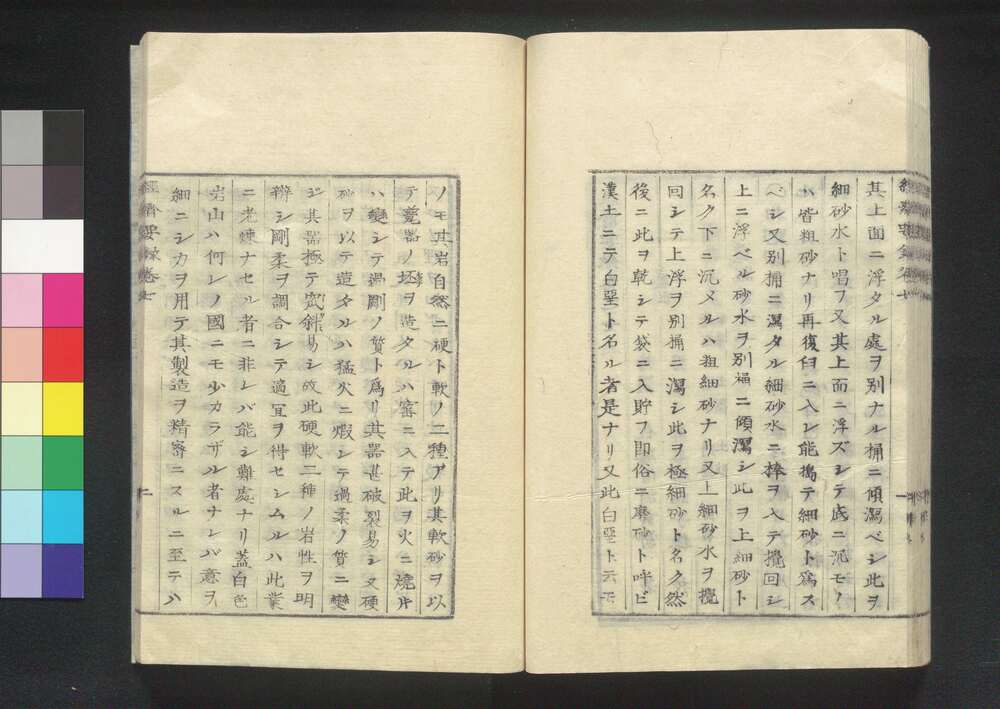 其上面ニ浮タル處ヲ別ナル桶ニ傾瀉ベシ此ヲ
細砂水ト唱フ又其上面ニ浮ズシテ底ニ泥モノ
ハ皆粗砂ナリ再復臼ニ入レ能搗テ細砂ト爲ス
ベシ又別桶ニ瀉タル細砂水ニ捧ヲ入テ攪回シ
上ニ浮ベル砂水ヲ別桶ニ傾瀉シ此ヲ上細砂ト
名ク下ニ沉メルハ粗細砂ナリ又上細砂水ヲ攪
回シテ上浮ヲ別桶ニ瀉シ此ヲ極細砂ト名ク然
後ニ此ヲ乾シテ袋ニ入貯フ即俗ニ磨砂ト呼ビ
漢土ニテ白堊ト名ル者是ナリ又此白堊ト云モ
ノモ其岩自然ニ硬ト軟ノ二種アリ其軟砂ヲ以
テ甕器ノ坯ヲ造タルハ窯ニ入テ此ヲ火ニ燒片
ハ變シテ過剛ノ質ト爲リ其器甚破裂易シ又硬
砂ヲ以テ造タルハ猛火ニ煆シテ過柔ノ質ニ變
ジ其器極テ窊斜リシ故此硬軟二種ノ岩性ヲ明
辨シ剛柔ヲ調合シテ適宜ヲ得セシムルハ此業
ニ老煉ナセル者ニ非レバ能シ難處ナリ蓋白色
岩山ハ何レノ國ニモ少カラザル者ナレバ意ヲ
細ニシカヲ用テ其製造ヲ精密ニスルニ至テハ
經濟要録卷七
二